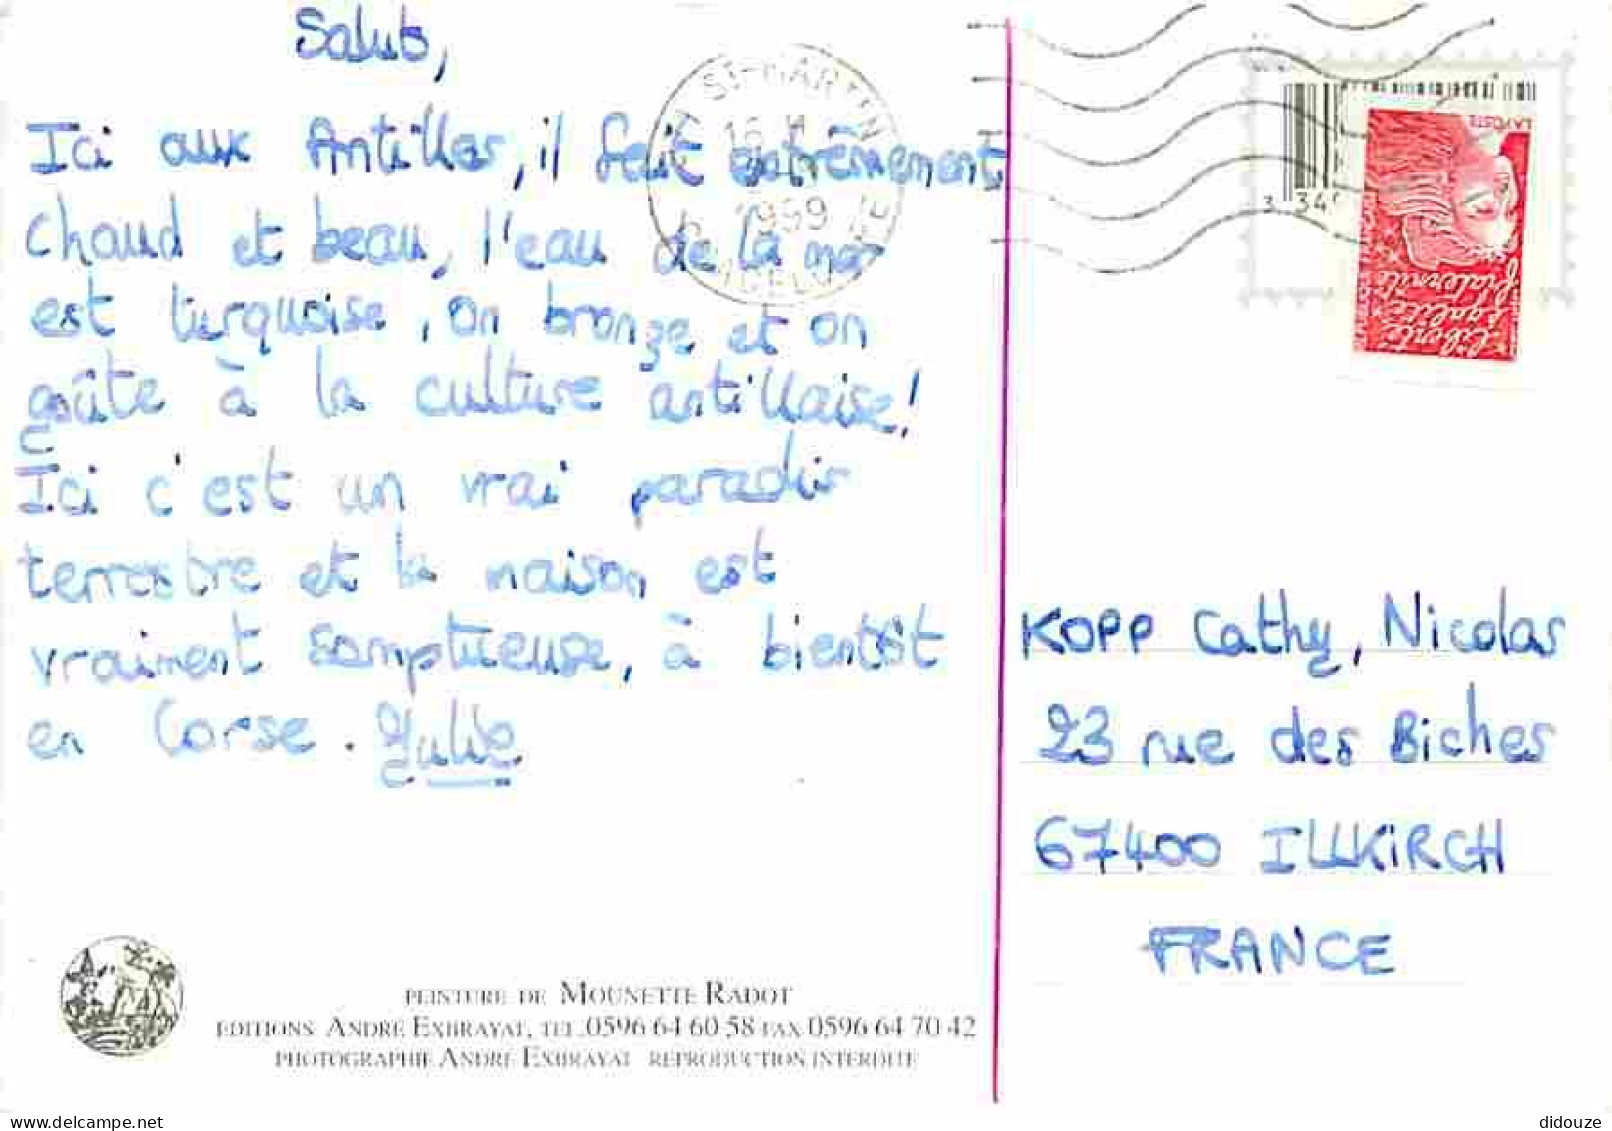 Salut,
Ici aux Antilles, il fait extrêmement
chaud et beau, l'eau de la mer
est turquoise, on bronze et on
goûte à la culture antillaise!
Ici c'est un vrai paradis
terrestre et la maison est
vraiment somptueuse, à bientôt
en Corse. Julie
ST-MARTIN
1999
LA POSTE
Liberté
égalité
fraternité
3 34
KOPP Cathy, Nicolas
23 rue des Biches
67400 ILLKIRCH
FRANCE
PEINTURE DE MOUNETTE RADOT
EDITIONS ANDRÉ EXBRAYAT, TEL.0596 64 60 58 FAX 0596 64 70 42
PHOTOGRAPHIE ANDRÉ EXBRAYAT REPRODUCTION INTERDITE
delcampe.net
didouze